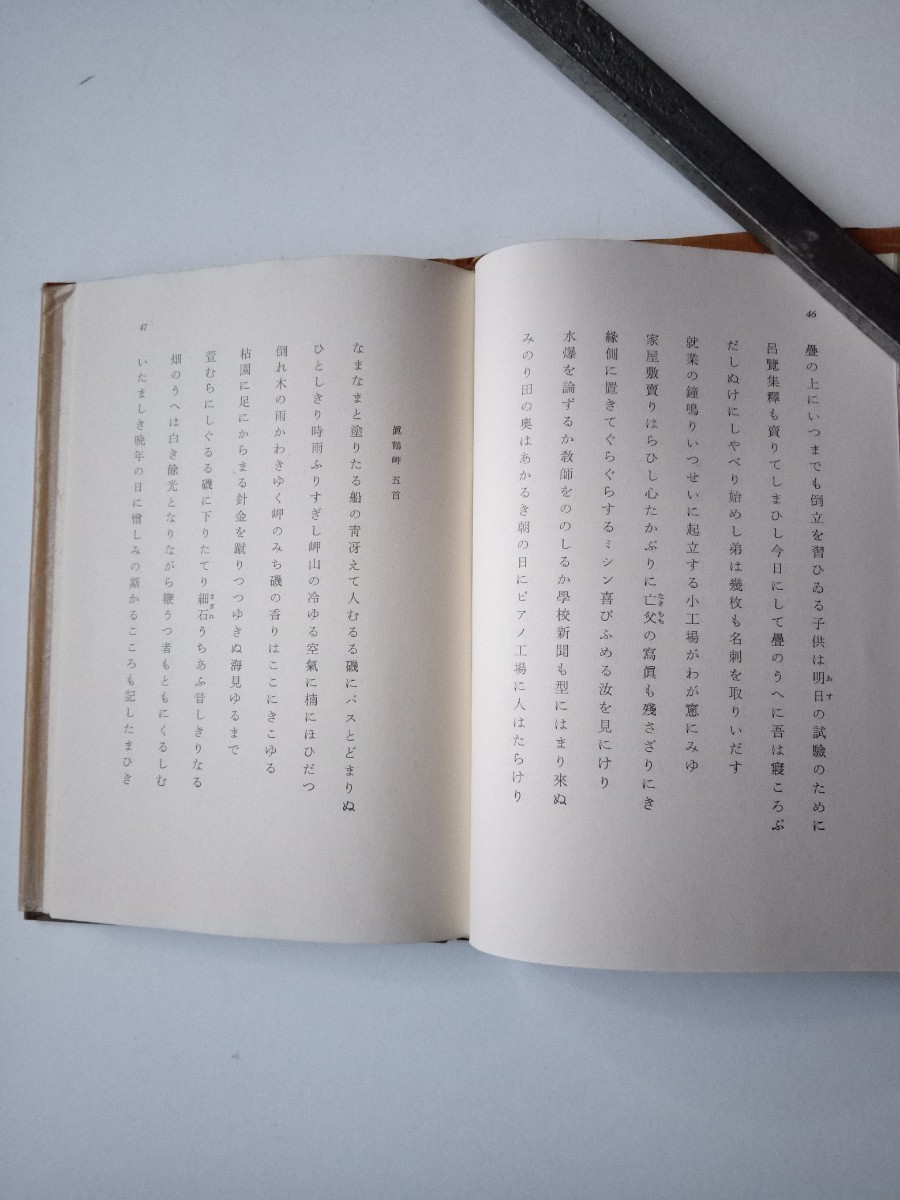 46
疊の上にいつまでも倒立を習ひゐる子供は明日の試驗のために
あす
呂覽集釋も賣りてしまひし今日にして疊のうへに吾は寢ころぶ
だしぬけにしやべり始めし弟は幾枚も名刺を取りいだす
就業の鐘鳴りいつせいに起立する小工場がわが窓にみゆ
家屋敷賣りはらひし心たかぶりに亡父の寫眞も殘さざりにき
なきちち
緣側に置きてぐらぐらするミシン喜びふめる汝を見にけり
水爆を論ずるか敎師をののしるか學校新聞も型にはまり來ぬ
みのり田の奧はあかるき朝の日にピアノ工場に人はたらけり
眞鶴岬 五首
なまなまと塗りたる船の靑冴えて人むるる磯にバスとどまりぬ
ひとしきり時雨ふりすぎし岬山の冷ゆる空氣に楠にほひだつ
倒れ木の雨かわきゆく岬のみち磯の香りはここにきこゆる
枯園に足にからまる針金を蹴りつつゆきぬ海見ゆるまで
萱むらにしぐるる磯に下りたてり細石うちあふ音しきりなる
さざれ
畑のうへは白き餘光となりながら鞭うつ者もともにくるしむ
いたましき晩年の日に憎しみの斯かるこころも記したまひき
47